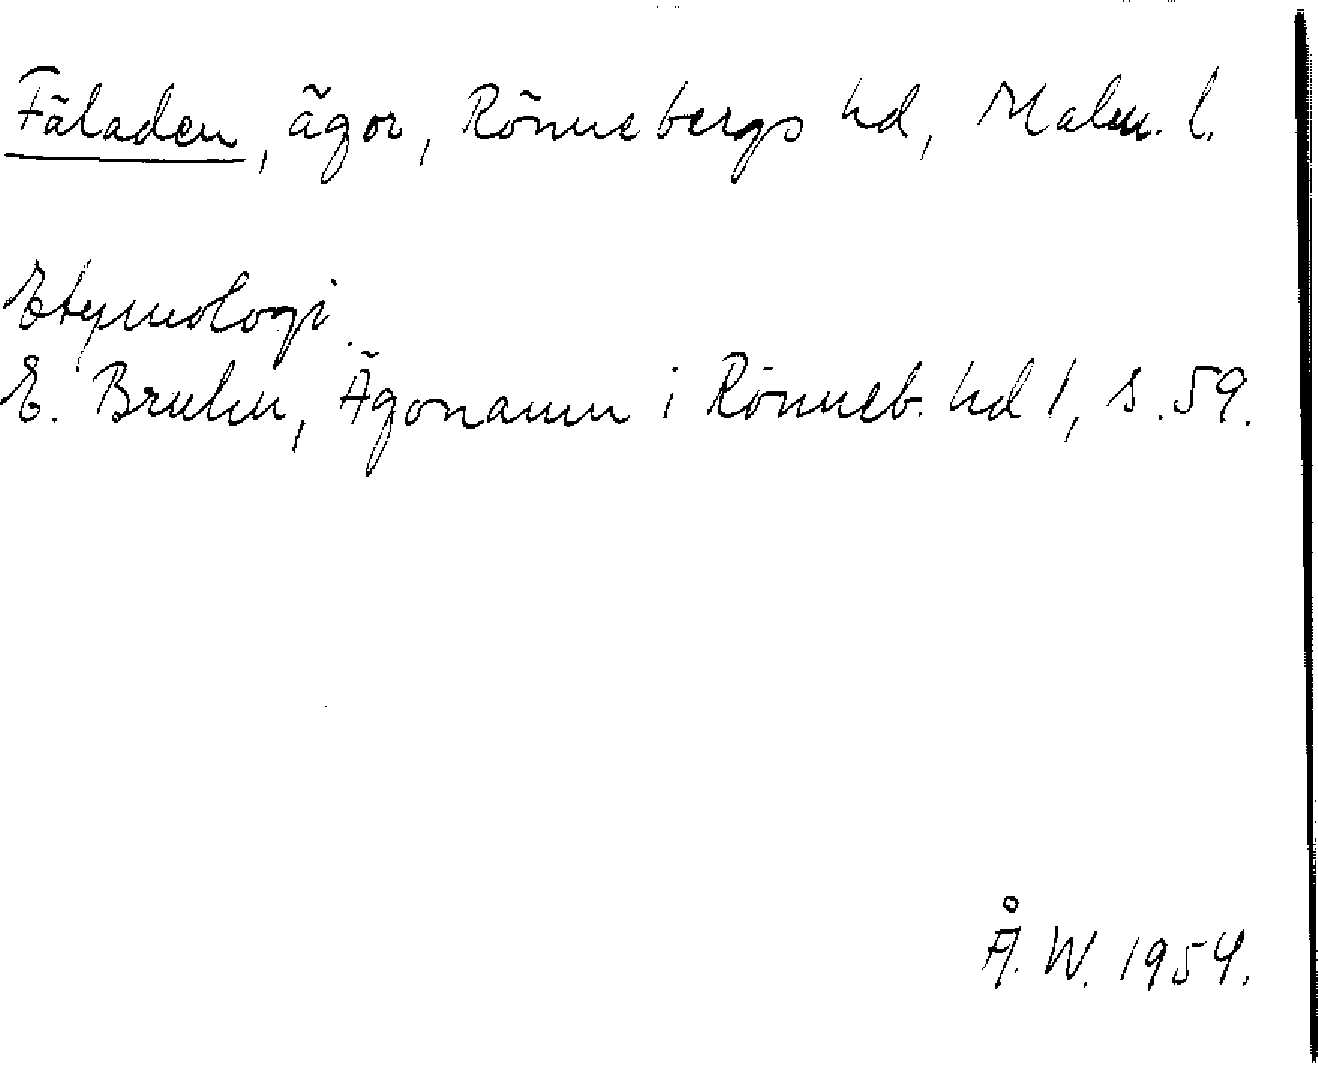 Fäladen, ägor, Rönnebergs hd, Malm. l.
Etymologi.
E. Bruhn, Ägonamn i Rönneb. hd 1, s. 59.
Å. W. 1954.